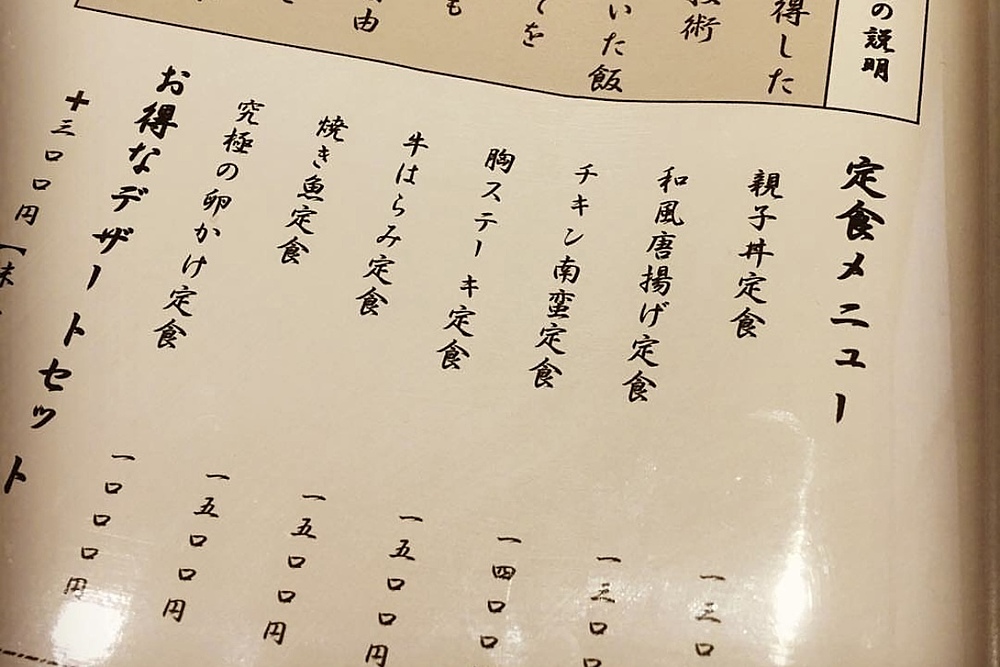 の説明
得した
術
いた飯
を
も
由
定食メニュー
親子丼定食 一三〇
和風唐揚げ定食 一三〇
チキン南蛮定食 一四〇〇
胸ステーキ定食 一五〇〇円
牛はらみ定食 一五〇〇円
焼き魚定食 一五〇〇円
究極の卵かけ定食 一〇〇〇円
お得なデザートセット
+三〇〇円